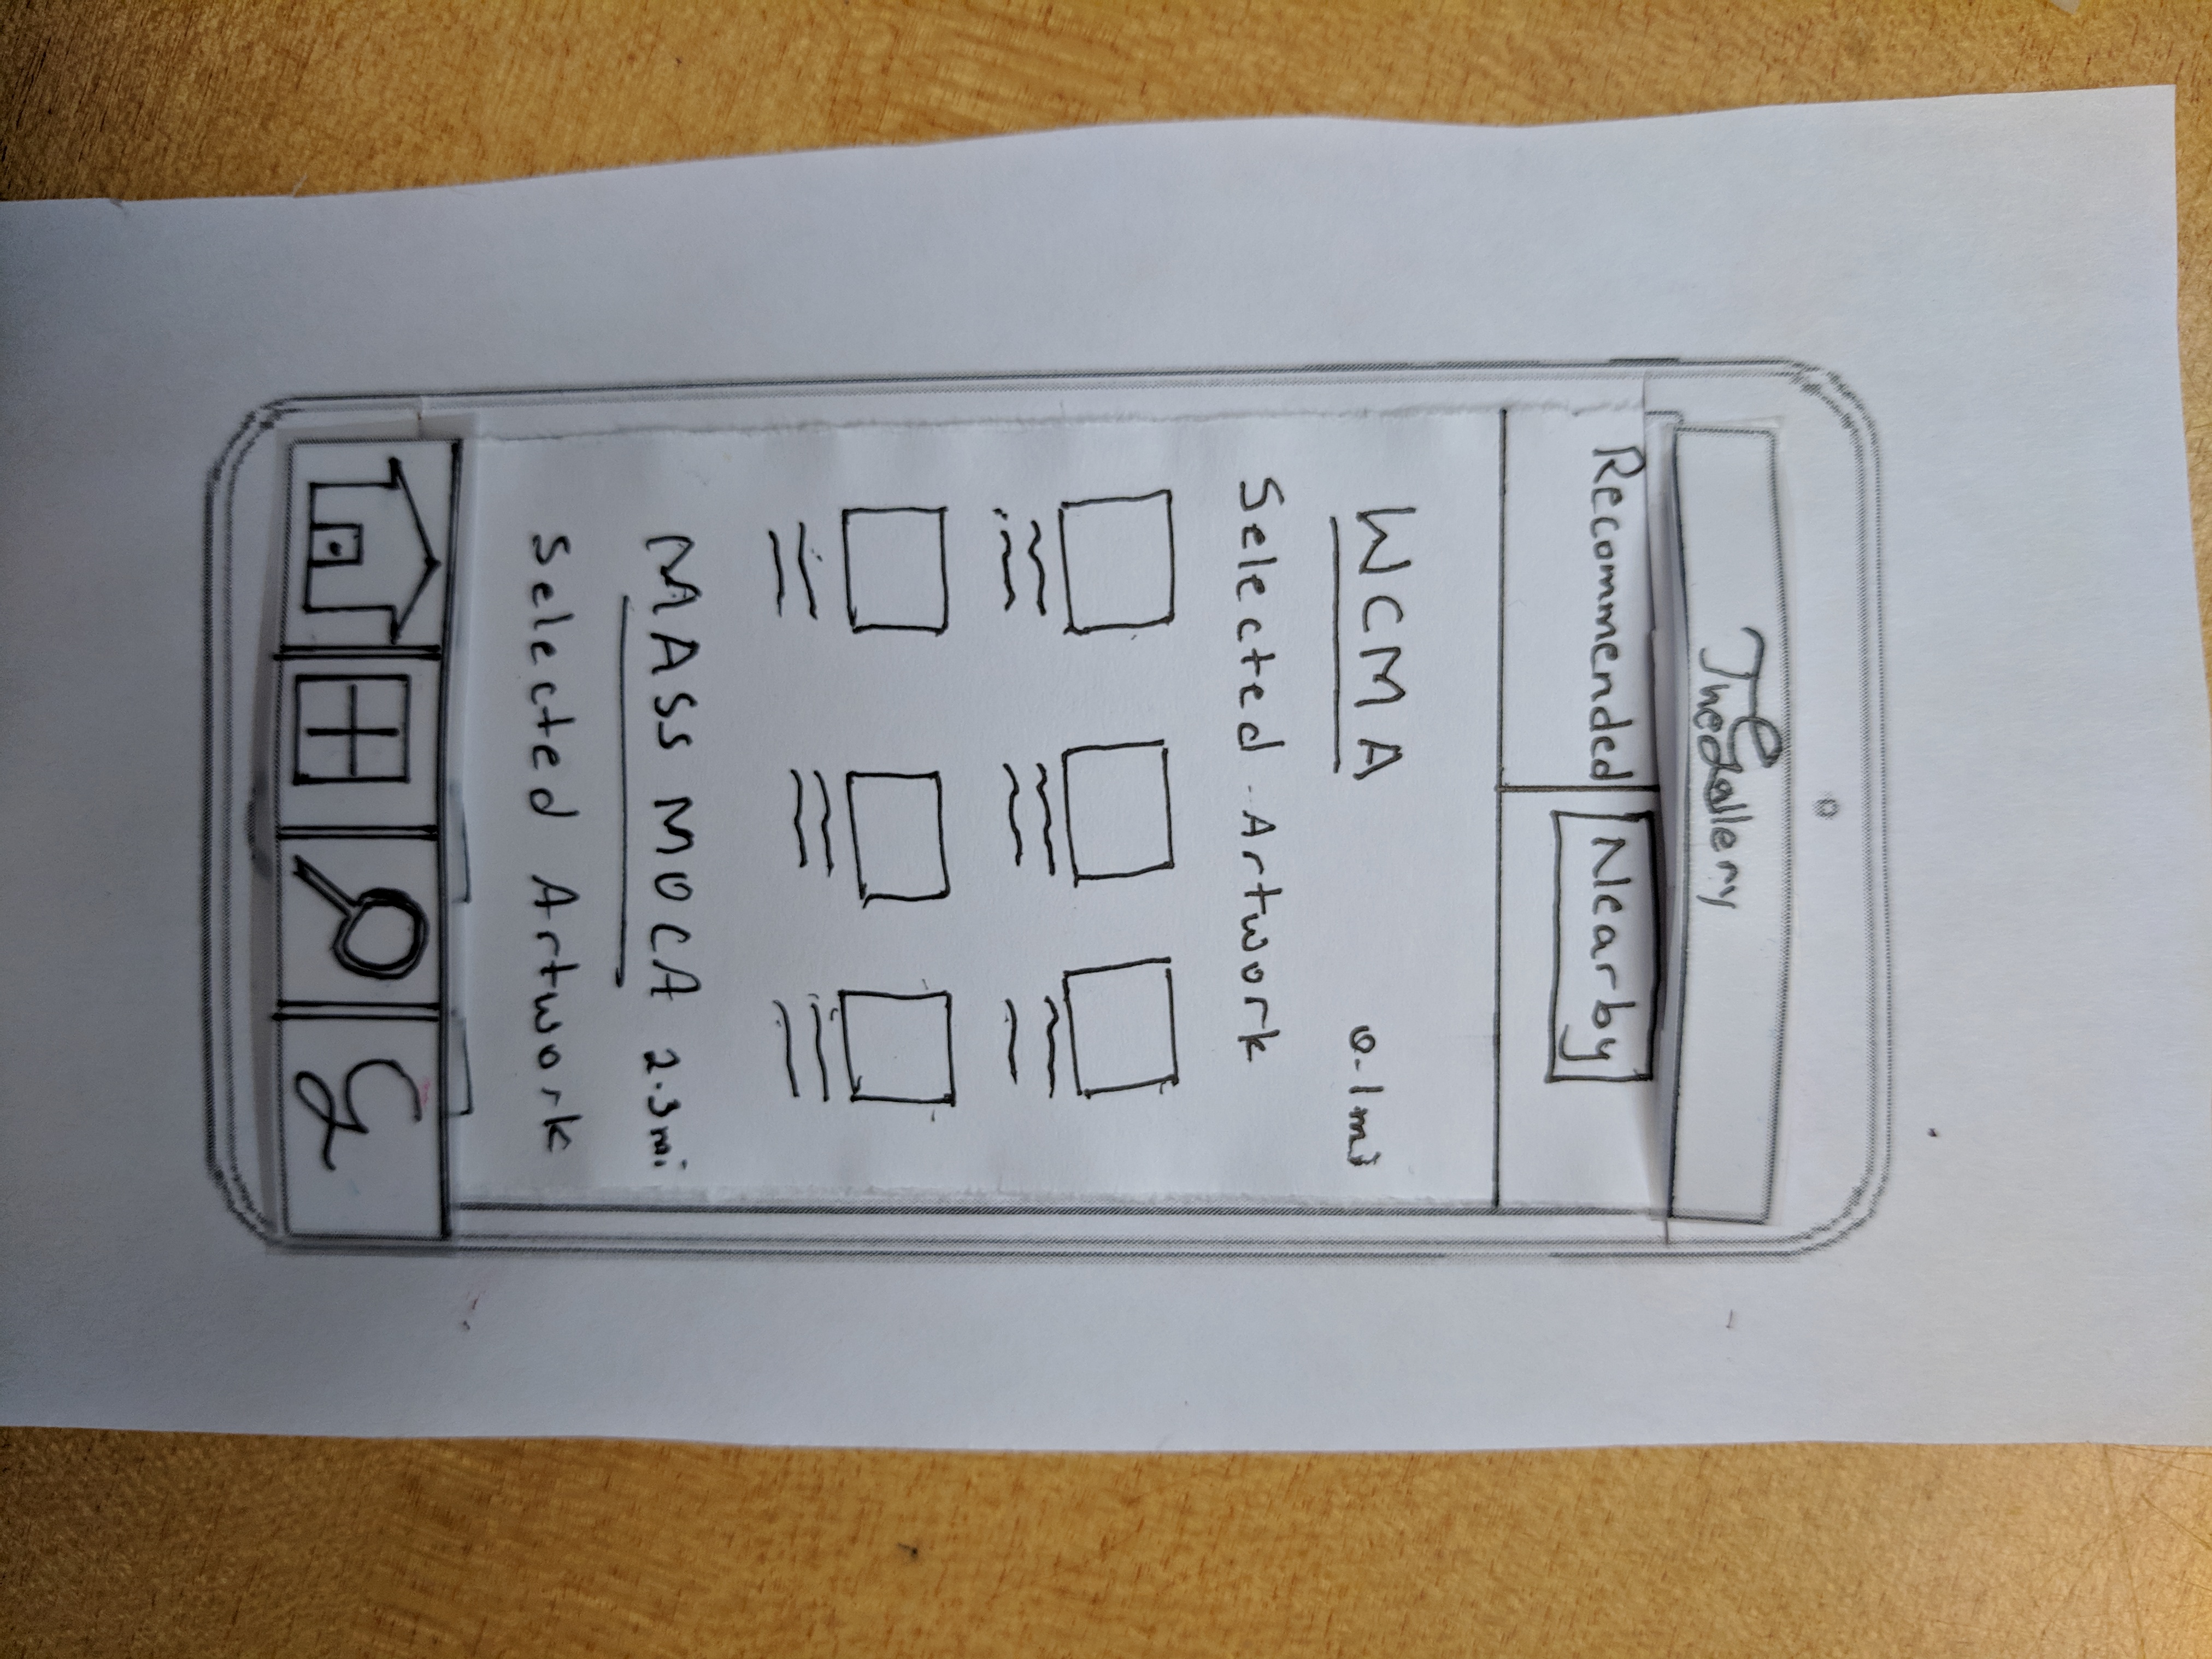 The Gallery
Recommended Nearby
WCMA 0.1mi
Selected Artwork
MASS MOCA 2.3mi
Selected Artwork